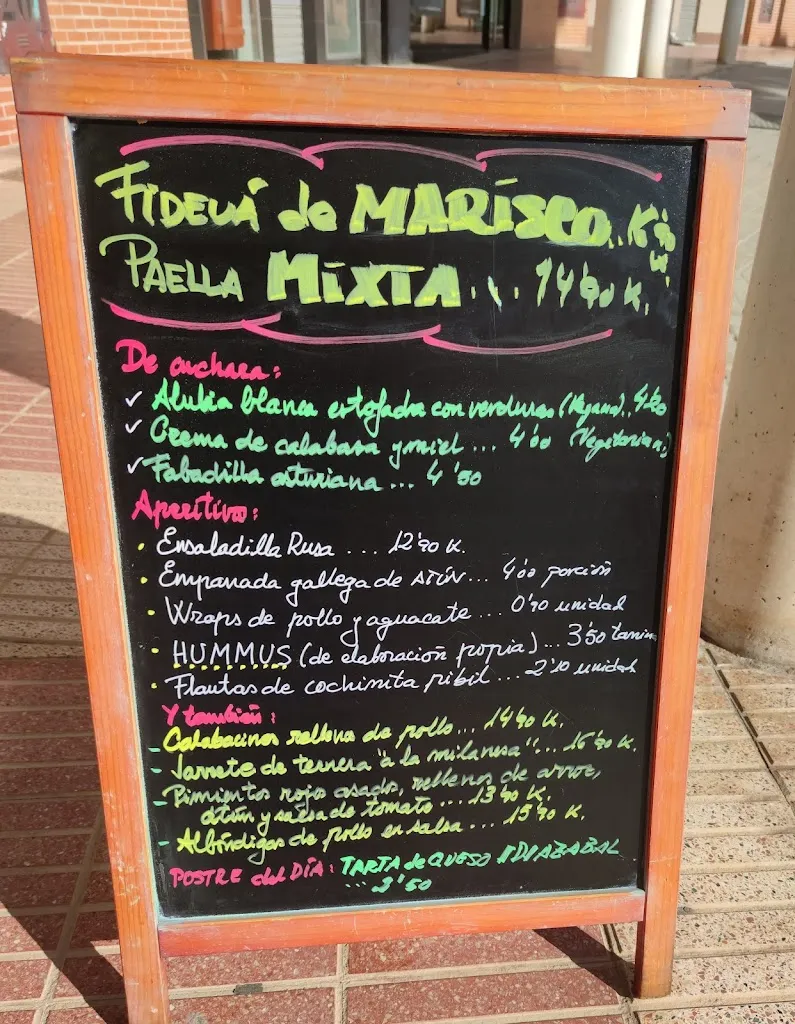 FIDEUÁ de MARISCO..
PAELLA MIXTA.... 14'90 K.
De cuchara:
Alubia blanca estofada con verduras (Vegana)..
Crema de calabaza y miel ... 4'00 (Vegetariana)
Fabadilla asturiana ... 4'50
Aperitivo:
Ensaladilla Rusa .... 12'90 K.
Empanada gallega de ATÚN... 4'00 porción
Wraps de pollo y aguacate ... 0'90 unidad
HUMMUS (de elaboración propia)... 3'50
Flautas de cochinita pibil ... 2'10 unidad
Y también:
- Calabacines rellenos de pollo... 14'90 K.
- Jarrete de ternera "a la milanesa"... 16'90 K.
- Pimientos rojo asado, rellenos de arroz,
atún y salsa de tomate ... 13'90 K.
- Albóndigas de pollo en salsa ... 15'90 K.
POSTRE del DÍA: TARTA de QUESO
... 3'50